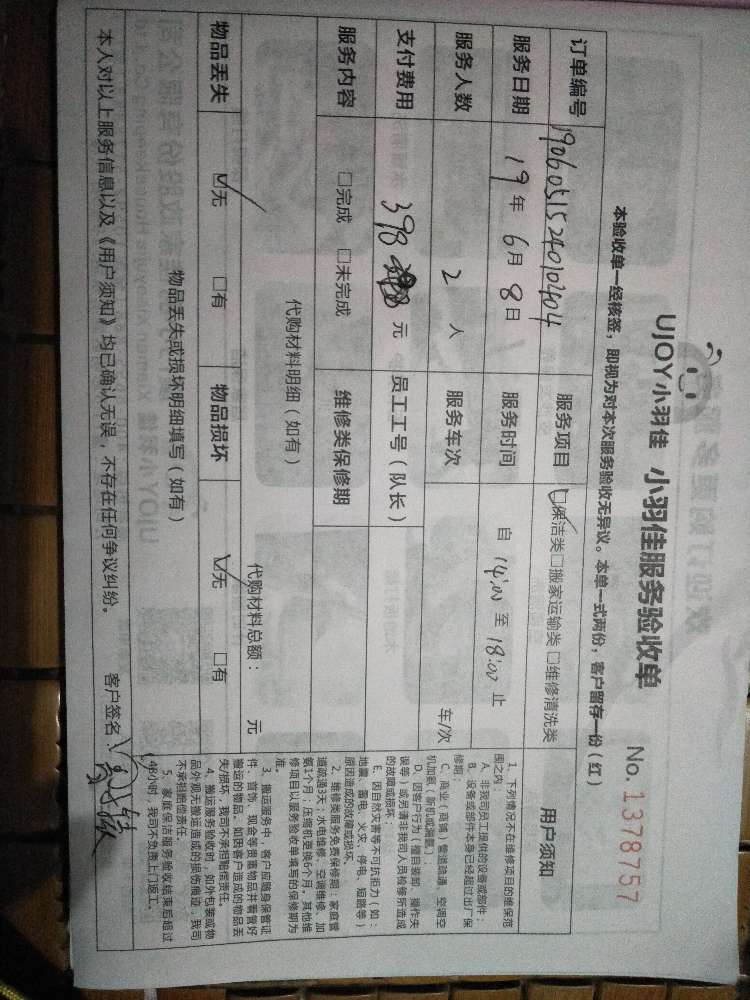 UJOY小羽佳 小羽佳服务验收单
No. 1378757
本验收单一经核签，即视为对本次服务验收无异议。本单一式两份，客户留存一份（红）
订单编号 19060515240102404 服务项目 ☑保洁类□搬家运输类□维修清洗类
服务日期 19年 6月 8日 服务时间 自 14:00 至 18:00 止
服务人数 2 人 服务车次 车/次
支付费用 398 元 员工工号（队长）
服务内容 □完成 □未完成 维修类保修期
代购材料明细（如有）
代购材料总额： 元
物品丢失 ☑无 □有 物品损坏 ☑无 □有
物品丢失或损坏明细填写（如有）
本人对以上服务信息以及《用户须知》均已确认无误，不存在任何争议纠纷。 客户签名：
用户须知
1、下列情况不在维修项目的维保范
围之内：
A、非我司员工提供的设备或部件；
B、设备或部件本身已经超过出厂保
修期；
C、商业（商铺）管道疏通、空调空
机加氨（新机或漏氨）；
D、因客户行为（擅自装卸、操作失
误等）或另请非我司人员检修所造成
的故障或损坏；
E、因自然灾害等不可抗拒力（如：
地震、雷电、火灾、停电、短路等）
原因造成的故障或损坏。
2、维修类服务免费保修期：家庭管
道疏通3天；水电维修、空调维修、加
氨1个月；压缩机更换6个月。其他维
修项目以服务验收单填写的保修期为
准。
3、搬运服务中，客户应随身保管证
件、首饰、现金等贵重物品并看管好
搬运的物品。如因客户造成的物品丢
失/损坏，我司不承担赔偿责任。
4、搬运服务验收时，如外包装或物
品外观无搬运造成的损伤痕迹，我司
不承担赔偿责任。
5、家庭保洁服务验收结束后超过
48小时，我司不负责上门返工。